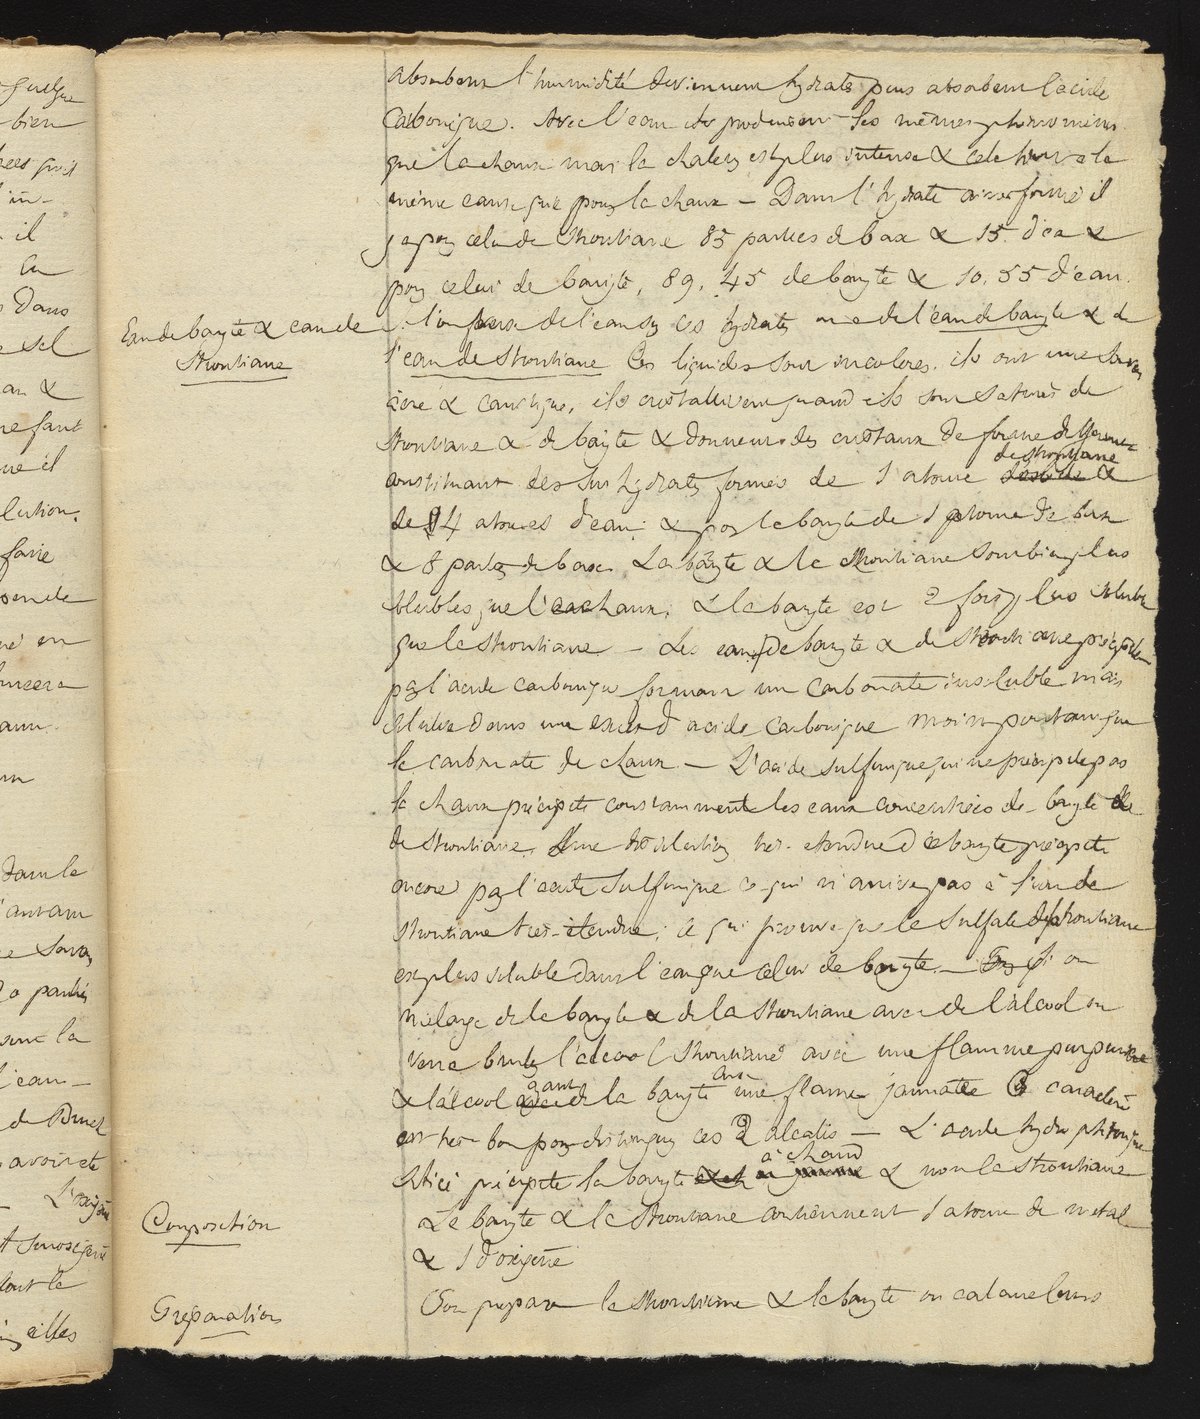 absorbent l'humidité deviennent hydrates puis absorbent l'acide
Carbonique. Avec l'eau ils produisent les mêmes phénomènes
que la chaux mais la chaleur est plus intense & cela tient a la
même cause que pour la chaux — Dans l'hydrate ainsi formé il
y a pour celui de Strontiane 85 parties de base & 15 d'eau &
pour celui de baryte, 89, 45 de baryte & 10,55 d'eau.
Eau de baryte & eau de
Strontiane
l'on verse de l'eau sur ces hydrates on a de l'eau de baryte & de
l'eau de Strontiane Ces liquides sont incolores, ils ont une saveur
âcre & caustique, ils cristallisent quand ils sont saturés de
Strontiane & de baryte & donnent des cristaux de forme différente
constituant des sur hydrates formés de 1 atome de strontiane &
de 14 atomes d'eau & pour la baryte de 1 atome de base
& 8 parties de base. La baryte & la Strontiane sont bien plus
solubles que la chaux, & la baryte est 2 fois plus soluble
que la Strontiane — Les eaux de baryte & de Strontiane précipitent
par l'acide carbonique formant un Carbonate insoluble mais
soluble dans une excès d'acide Carbonique moins pourtant que
le carbonate de chaux — L'acide sulfurique qui ne précipite pas
la chaux précipite constamment les eaux concentrées de baryte &
de Strontiane. Une dissolution très étendue de baryte précipite
encore par l'acide Sulfurique ce qui n'arrive pas à l'eau de
Strontiane très-étendue; ce qui prouve que le Sulfate de strontiane
est plus soluble dans l'eau que celui de baryte. — Si on
mélange de la baryte & de la Strontiane avec de l'alcool on
verra bruler l'alcool Strontiané avec une flamme purpurine
& l'alcool ayant de la baryte avec une flamme jaunatre Ce caractère
est très bon pour distinguer ces 2 alcalis — L'acide hydro phtorique
Silicé précipite la baryte à chaud & non la Strontiane
Composition
La baryte & la Strontiane contiennent 1 atome de metal
& 1 d'oxigène
Préparation
On prépare la Strontiane & la baryte en calcinant leurs